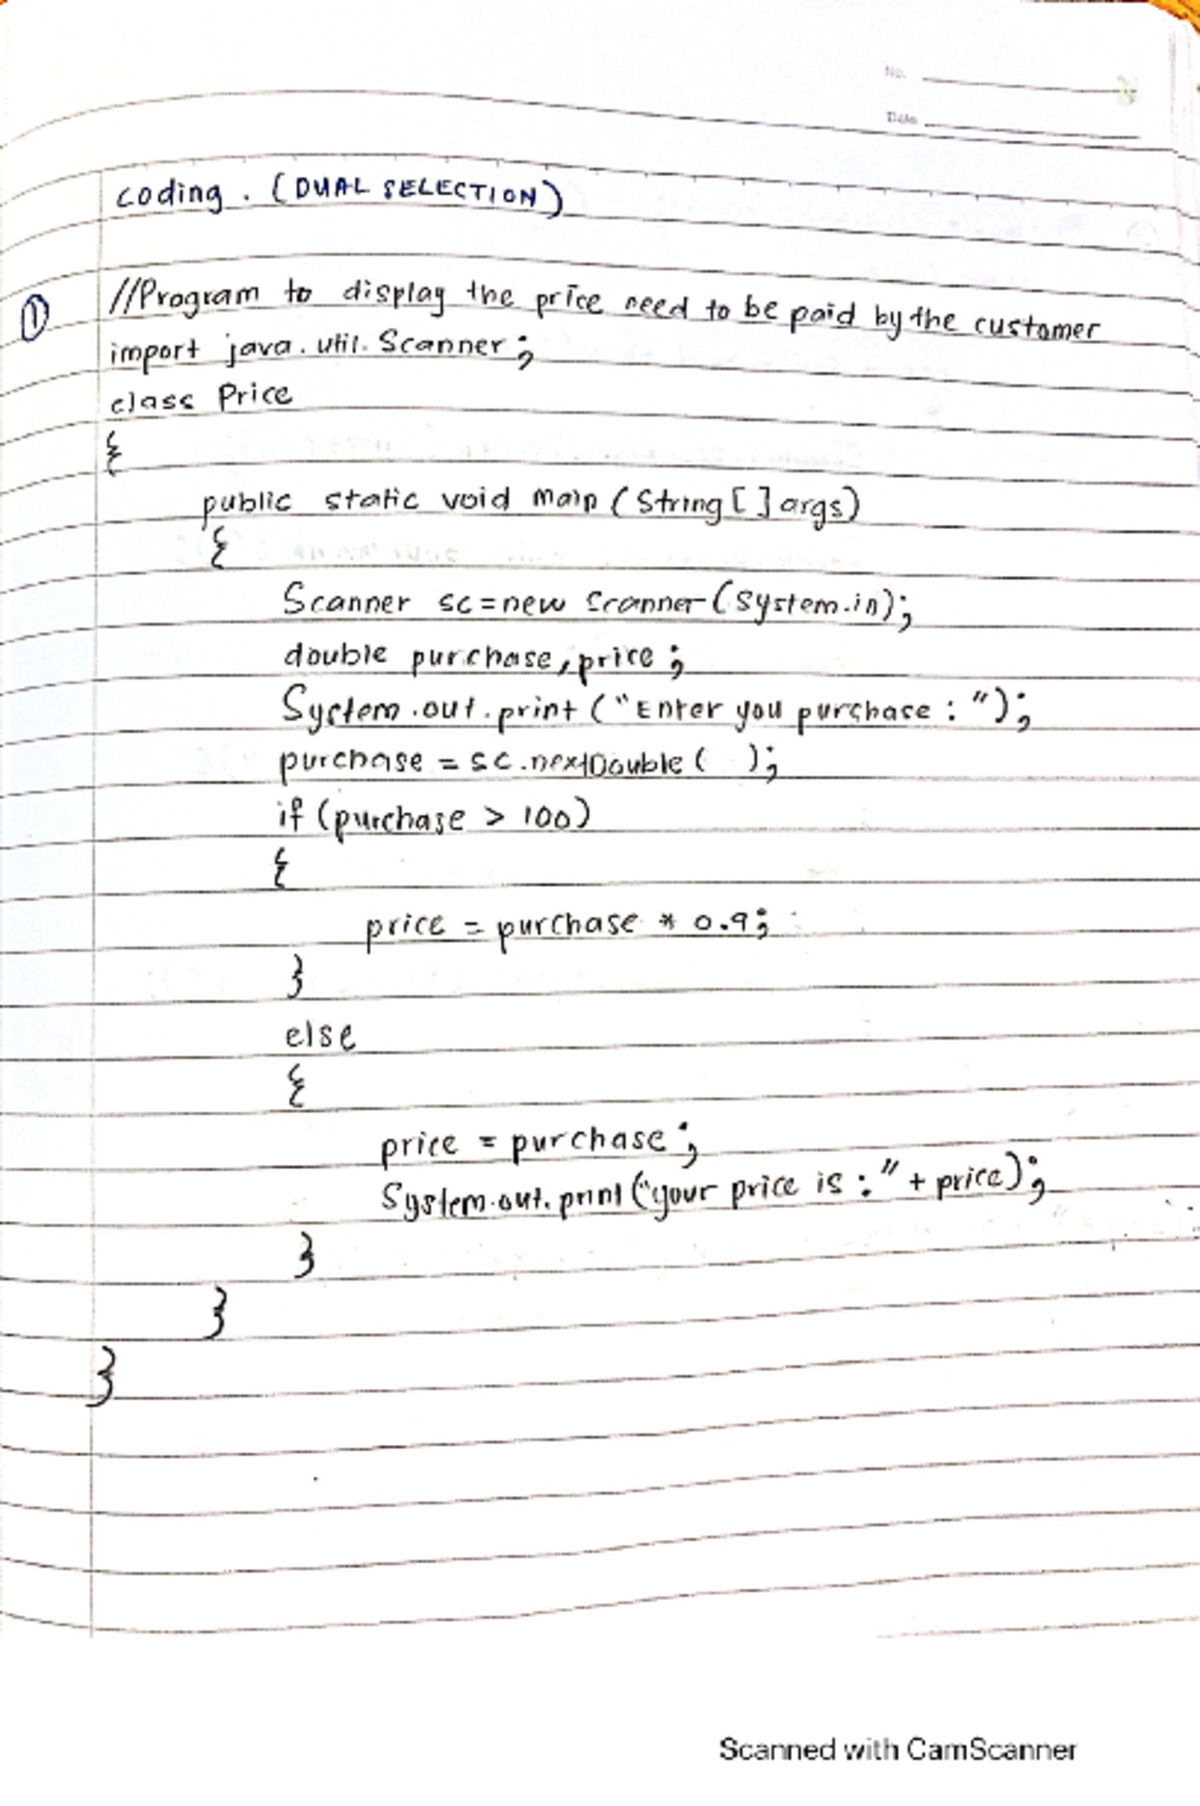 No.
Date
coding. (DUAL SELECTION)
① //Program to display the price need to be paid by the customer
import java.util.Scanner;
class Price
{
public static void main (String [] args)
{
Scanner sc=new Scanner(System.in);
double purchase, price;
System.out.print ("Enter you purchase : ");
purchase = sc.nextDouble ( );
if (purchase > 100)
{
price = purchase * 0.9;
}
else
{
price = purchase;
System.out.print ("your price is :" + price);
}
}
}
Scanned with CamScanner